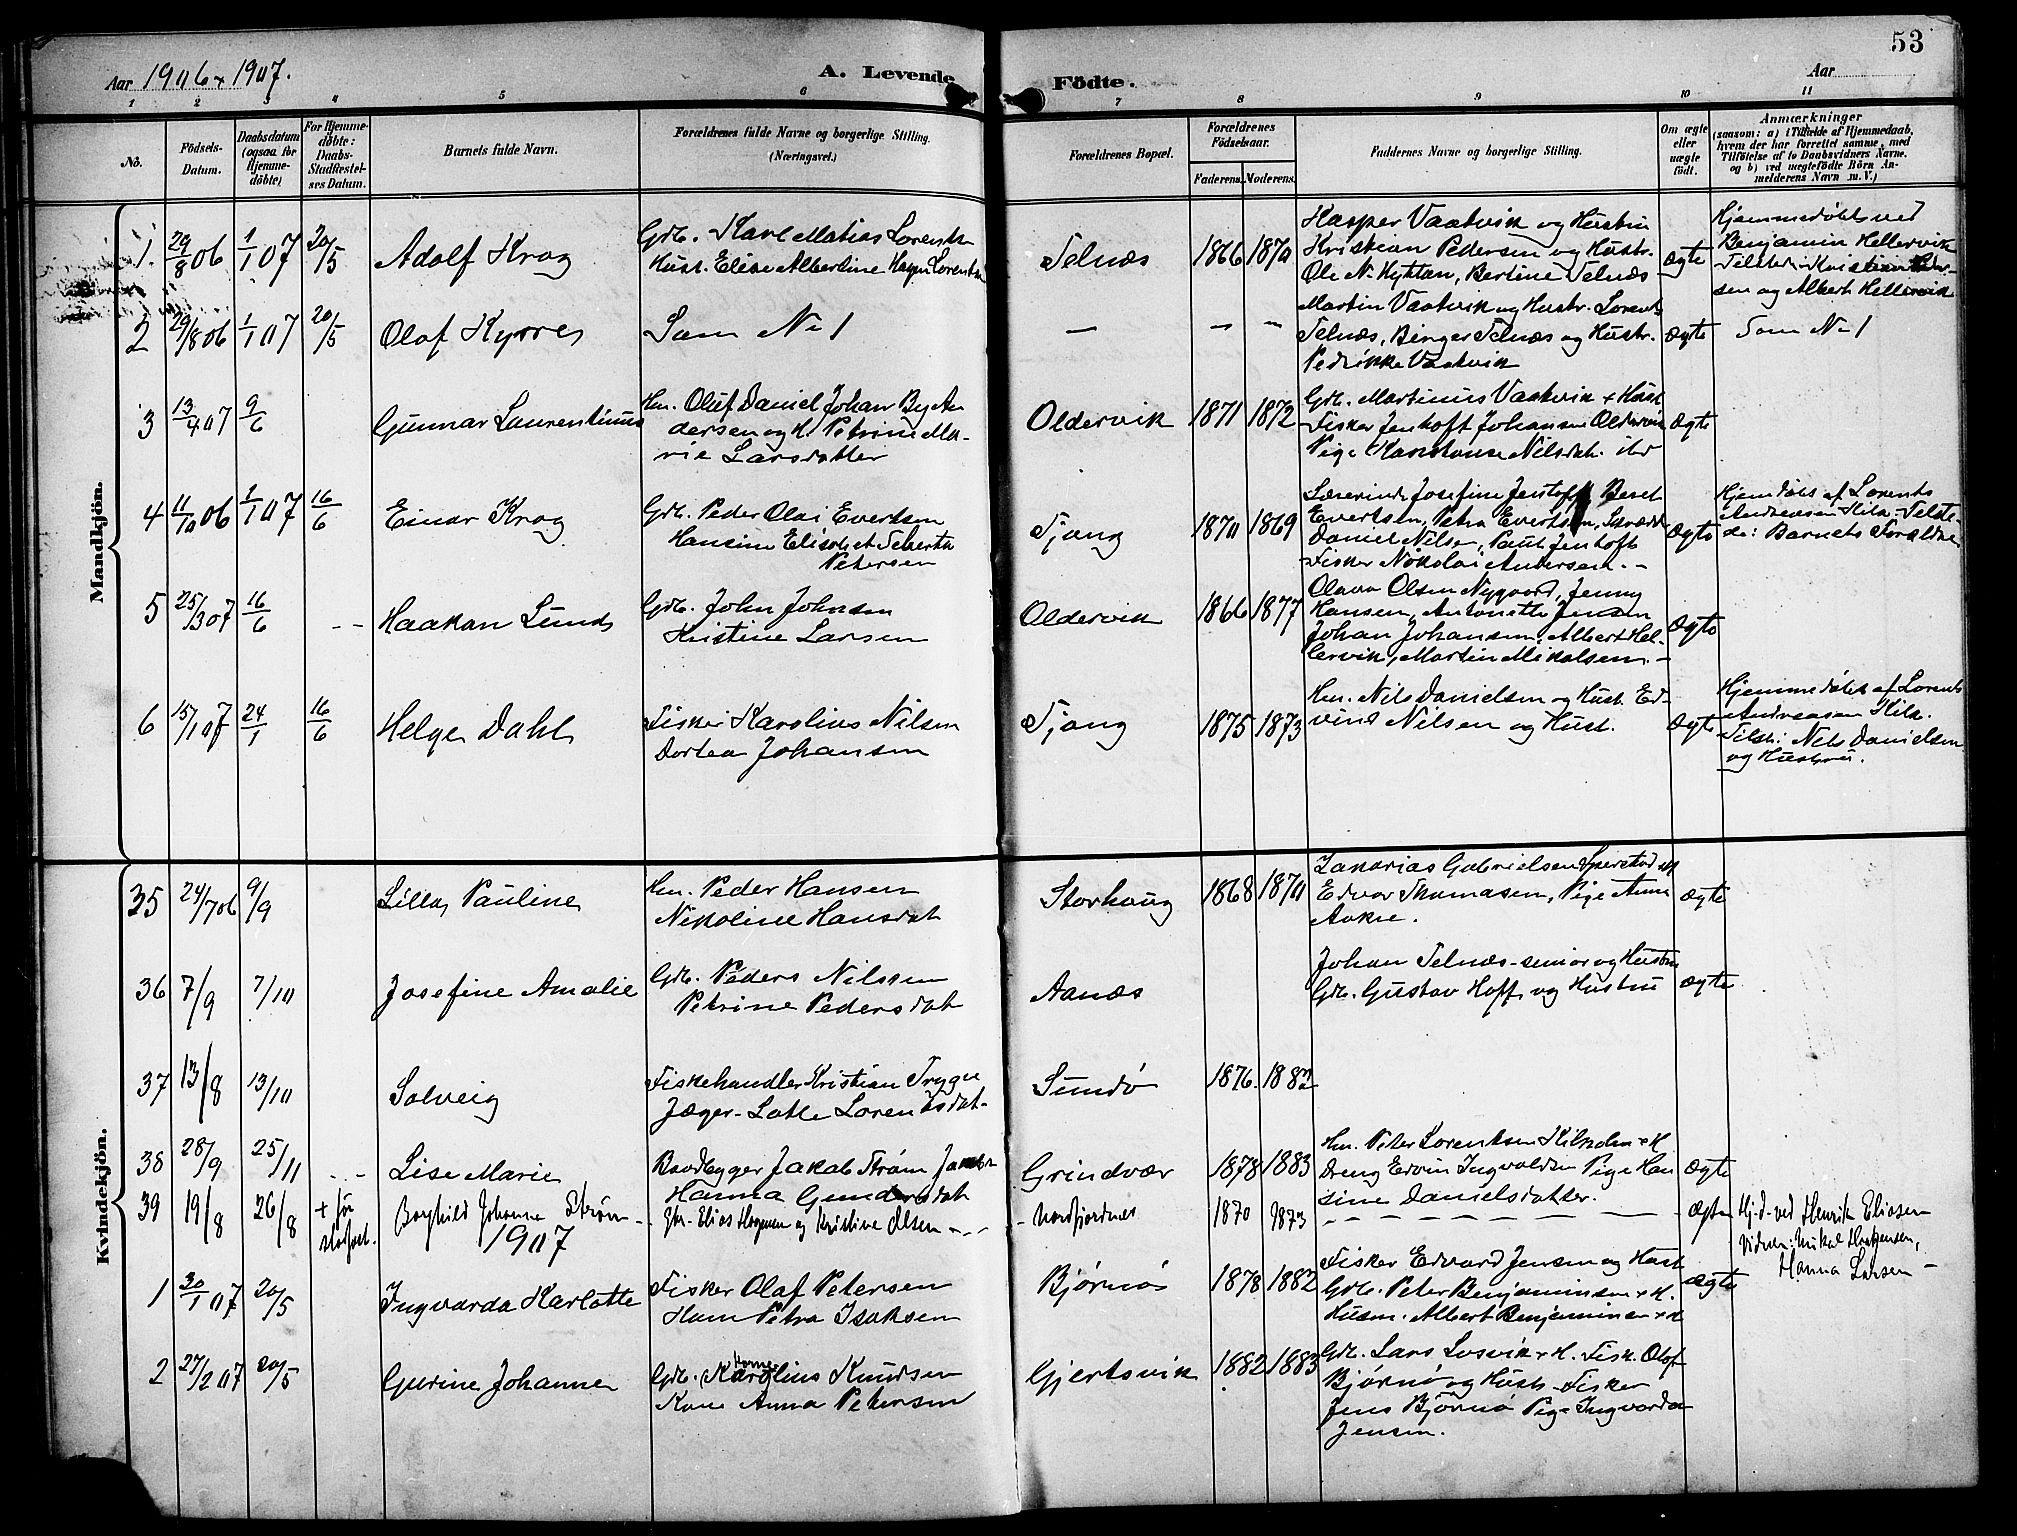 53
Aar 1906 & 1907.
A. Levende Födte.
Aar
1 2 3 4 5 6 7 8 9 10 11
No.
Födsels-Datum.
Daabsdatum (ogsaa for Hjemme-döbte)
For Hjemme-döbte: Daabs-Stadfæstel-ses Datum.
Barnets fulde Navn.
Forældrenes fulde Navne og borgerlige Stilling. (Næringsvei.)
Forældrenes Bopæl.
Forældrenes Födselsaar.
Faderens. Moderens.
Faddernes Navne og borgerlige Stilling.
Om ægte eller uægte födt.
Anmærkninger
(saasom: a) i Tilfælde af Hjemmedaab,
hvem der har forrettet samme, med
Tilföielse af to Daabsvidners Navne.
og b) ved uægtefödte Börn An-
melderens Navn m. V.)
Mandkjön.
1. 29/8 06 1/1 07 20/5 Adolf Krog
Grb. Karl Matias Lorents
Hust. Elise Albertine Lorents
Selnæs 1866 1870
Kasper Vaatvik og Hustru
Kristian Pedersen og Hustr.
Ole N. Hyttan, Bertine Selnæs
ægte
Hjemmedøbt ved
Benjamin Hellervik
sen og Albert Hellervik
2 29/8 06 1/1 07 20/5 Olaf Kyrre
Som No 1
— — —
Martin Vaatvik og Hustr. Lorents
Selnæs, Binger Selnæs og Hustr.
Pedrikke Vaatvik
ægte
Som No 1
3 13/4 07 9/6 Gunnar Laurentinus
Hm. Oluf Daniel Johan By An
dersen og H. Petrine Ma-
rie Larsdatter
Oldervik 1871 1872
Grb. Martinus Vaatvik + Hust
Fisker Jentoft Johansen Oldervik
Pige Konstanse Nilsdat. ibd
ægte
4 11/10 06 1/1 07 16/6 Einar Krog
Grb. Peder Olai Evertsen
Hansine Elisabet
Petersen
Tjong 1870 1869
Lærerinde Josefine Jentoft Beret
Evertsen, Petra Evertsen,
Daniel Nilsen, Paul Jentoft
Fisker Nikolai Andersen. -
ægte
Hjemdøbt af Lorents
Andreasen Kila. Tilste-
de: Barnets Foraldre
5 25/3 07 16/6 -- Haakon Lund
Grb. John Johnsen
Kristine Larsen
Oldervik 1866 1877
Olava Olsen Nygaard, Jenny
Hansen, Antonette Jensen
Johan Johansen, Albert Hel-
lervik, Martin Mikalsen. -
ægte
6 15/1 07 24/1 16/6 Helge Dahl
Fisker Karolius Nilsen
Dortea Johansen
Tjong 1875 1873
Hm. Nils Danielsen og Hust. Ed-
vind Nilsen og Hust.
ægte
Hjemmedøbt af Lorents
Andreasen Kila.
Tilst: Nils Danielsen
og Hustru.
Kvindekjön.
35 24/7 06 9/9 Lilly Pauline
Hm. Peder Hansen
Nikoline Hansdat
Storhaug 1868 1870
Zakarias Gabrielsen Sperstad + H
Edvar Thomasen, Pige Anna
Aakre.
ægte
36 7/9 7/10 Josefine Amalie
Grb. Peders Nilssen
Petrine Pedersdat
Aanæs
Johan Selnæs-senior og Hustru
Grb. Gustav Hoff og Hustru
ægte
37 13/8 13/10 Solveig
Fiskehandler Kristian Trygve
Jæger - Lotte Lorentsdat-
Sundø 1876. 1882
38 28/9 25/11 -- Lise Marie
Baadbygger Jakob Strøm
Hanna Gundersdat
Grindvær 1878 1883
Hm. Peter Lorentsen Kilholm + H
Dreng Edvin Ingvaldsen Pige Han
sine Danielsdatter.
ægte
39 19/8 26/8 + før stadfæst. Borghild Johanne Strøm
Gbr. Elias Hagensen og Kristine Olsen - - -
- Nordfjordnes 1870 1873
- - - - - - - -
ægte
Hj.d. ved Henrik Eliasen
Vidner: Mikal Haagensen,
Hanna Larsen -
1907
1 30/1 07 20/5 Ingvarda Karlotte
Fisker Olaf Petersen
Ham Petra Isaksen
Bjørnø 1878 1882
Fisker Edvard Jensen og Hust
Grb. Peter Benjaminsen + H.
Husm. Albert Benjaminsen + H
ægte
2 27/2 07 20/5 Gurine Johanne
Grb. Karolius Knudsen
Kone Anna Petersen
Gjertsvik 1882 1883
Grb. Lars Losvik + H. Fisk. Olof
Bjørnø og Hust - Fisker
Jens Bjørnø Pige Ingvarda
Jensen.